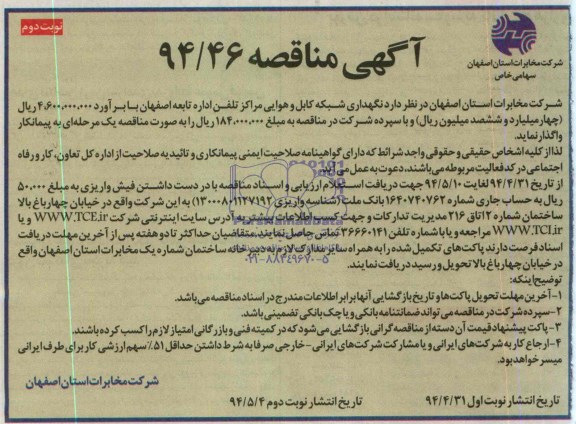 نوبت دوم
شرکت مخابرات استان اصفهان
سهامی خاص
آگهی مناقصه ۹۴/۴۶
شرکت مخابرات استان اصفهان در نظر دارد نگهداری شبکه کابل و هوایی مراکز تلفن اداره تابعه اصفهان با برآورد ۴،۶۰۰،۰۰۰،۰۰۰ ریال
(چهارمیلیارد و ششصد میلیون ریال) و با سپرده شرکت در مناقصه به مبلغ ۱۸۴،۰۰۰،۰۰۰ ریال را به صورت مناقصه یک مرحله‌ای به پیمانکار
واگذار نماید.
لذا از کلیه اشخاص حقیقی و حقوقی واجد شرائط که دارای گواهینامه صلاحیت ایمنی پیمانکاری و تائیدیه صلاحیت از اداره کل تعاون، کار و رفاه
اجتماعی در کد فعالیت مربوطه می‌باشند، دعوت به عمل می‌آید
از تاریخ ۹۴/۴/۳۱ لغایت ۹۴/۵/۱۰ جهت دریافت استعلام ارزیابی و اسناد مناقصه با در دست داشتن فیش واریزی به مبلغ ۵۰،۰۰۰
ریال به حساب جاری شماره ۱۶۴۰۷۴۰۷۶۲ بانک ملت (شناسه واریزی ) به این شرکت واقع در خیابان چهارباغ بالا
ساختمان شماره ۲ اتاق ۲۱۶ مدیریت تدارکات و جهت کسب اطلاعات بیشتر به آدرس سایت اینترنتی شرکت WWW.TCE.ir و یا
WWW.TCI.ir مراجعه و یا با شماره تلفن ۳۶۶۶۰۱۴۱ تماس حاصل نمایند. متقاضیان حداکثر تا دو هفته پس از آخرین مهلت دریافت
اسناد فرصت دارند پاکت‌های تکمیل شده را به همراه سایر مدارک لازم به دبیرخانه ساختمان شماره یک مخابرات استان اصفهان واقع
در خیابان چهارباغ بالا تحویل و رسید دریافت نمایند.
۰۲۱-۸۸۳۴۹۶۷۰-۵
توضیح اینکه:
۱-آخرین مهلت تحویل پاکت‌ها و تاریخ بازگشایی آنها برابر اطلاعات مندرج در اسناد مناقصه می‌باشد.
۲-سپرده شرکت در مناقصه می‌تواند ضمانتنامه بانکی و یا چک بانکی تضمینی باشد.
۳-پاکت پیشنهاد قیمت آن دسته از مناقصه گرانی بازگشایی می‌شود که در کمیته فنی و بازرگانی امتیاز لازم را کسب کرده باشند.
۴-ارجاع کار به شرکت‌های ایرانی و یا مشارکت شرکت‌های ایرانی-خارجی صرفا به شرط داشتن حداقل ۵۱٪ سهم ارزشی کار برای طرف ایرانی
میسر خواهد بود.
شرکت مخابرات استان اصفهان
تاریخ انتشار نوبت اول ۹۴/۴/۳۱ تاریخ انتشار نوبت دوم ۹۴/۵/۴